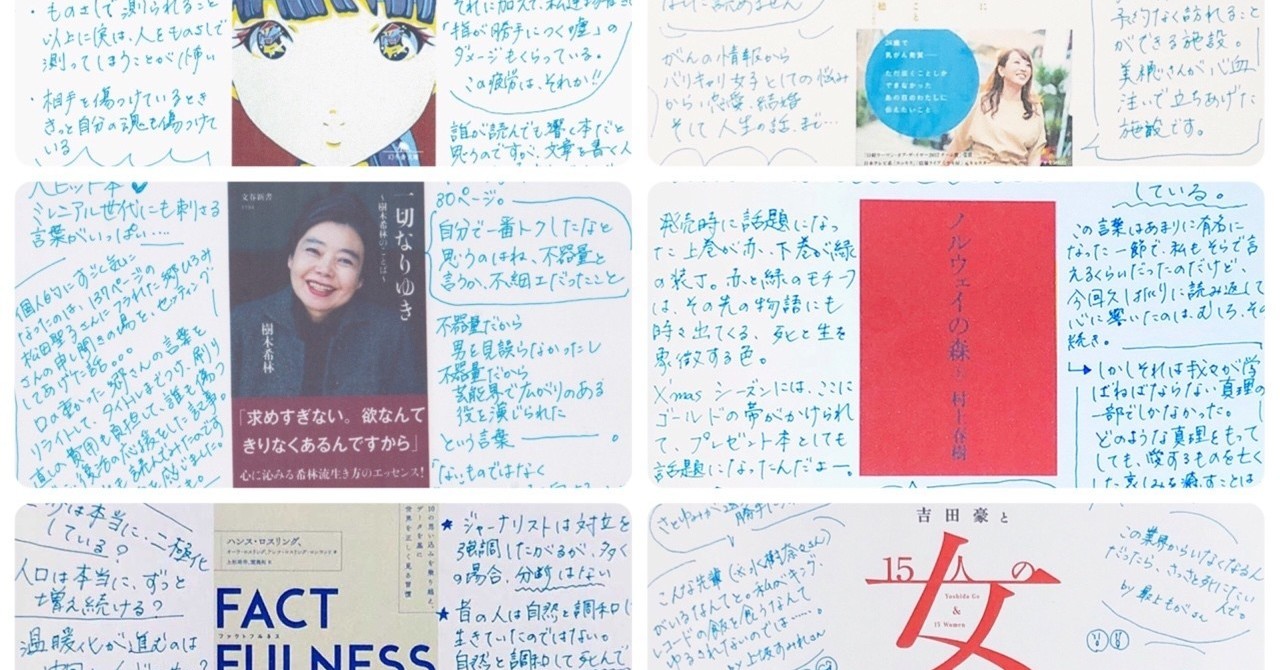 ・ものさしで測られること
以上に実は、人をものさしで
測ってしまうことが怖い
・相手を傷つけているとき
きっと自分の魂も傷つけて
いる
それに加えて、私達
「指が勝手につく嘘」の
ダメージもくらっている。
この疲労は、それか!!
誰が読んでも響く本だと
思うのですが、文章を書く人
幻冬舎文庫
がんの情報から
バリキャリ女子としての悩み
から恋愛、結婚
そして人生の話まで…
24歳で
乳がん発覚──
ただ泣くことしか
できなかった
あの日のわたしに
伝えたいこと
予約なく訪れること
ができる施設。
美穂さんが心血
注いで立ちあげた
施設です。
大ヒット本
ミレニアル世代にも刺さる
言葉がいっぱい…
個人的にすごく気に
なったのは、137ページの
松田聖子さんにフラれた郷ひろみ
さんの申し開きの場を、セッティング
してあげた話。。。
口の重かった郷さんの言葉を
リライトして、タイトルまでつけ、刷り
直しの費用も負担して、誰も傷つ
文春新書
一切なりゆき
～樹木希林のことば～
樹木希林
「求めすぎない。欲なんて
きりなくあるんですから」
心に沁みる希林流生き方のエッセンス!
80ページ。
自分で一番トクしたなと
思うのはね、不器量と
言うか、不細工だったこと
不器量だから
男を見誤らなかったし
不器量だから
芸能界で広がりのある
役を演じられた
という言葉
ないものではなく
発売時に話題になっ
た上巻が赤、下巻が緑
の装丁。赤と緑のモチーフ
は、その先の物語にも
時々出てくる、死と生を
象徴する色。
X'masシーズンには、ここに
ゴールドの帯がかけられ
て、プレゼント本としても
話題になったんだよー。
ノルウェイの森 上 村上春樹
している。
この言葉はあまりに有名に
なった一節で、私もそらで言
えるくらいだったのだけど、
今回久しぶりに読み返して
心に響いたのは、むしろ、その
続き。
しかしそれは我々が学
ばねばならない真理の
一部でしかなかった。
どのような真理をもって
しても、愛するものを亡く
した哀しみを癒すことは
は本当に、二極化
している?
人口は本当に、ずっと
増え続ける?
温暖化が進むのは
10の思い込みを乗り越え、
データを基に
世界を正しく見る習慣
ハンス・ロスリング、
オーラ・ロスリング、アンナ・ロスリング・ロンランド 著
上杉周作、関美和 訳
FACT
ファクトフルネス
FULNESS
★ ジャーナリストは対立を
強調したがるが、多く
の場合、分断はない
★ 昔の人は自然と調和し
生きていたのではない。
自然と調和して死んで
さとゆみが
勝手に
こんな先輩(※水樹奈々さん)
がいるなんてと。私がキング・
レコードの飯を食うなんて
ゆるされないのでは……。
by 上坂すみれさん
吉田豪と
15人の
女
Yoshida Go
&
15 Women
この業界からいなくなるん
だったら、さっさと死にたい
んで。
by 最上もがさん